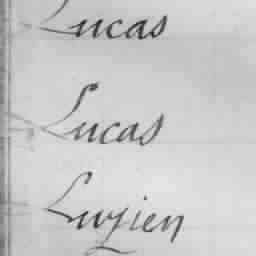 Lucas
Lucas
Luzien